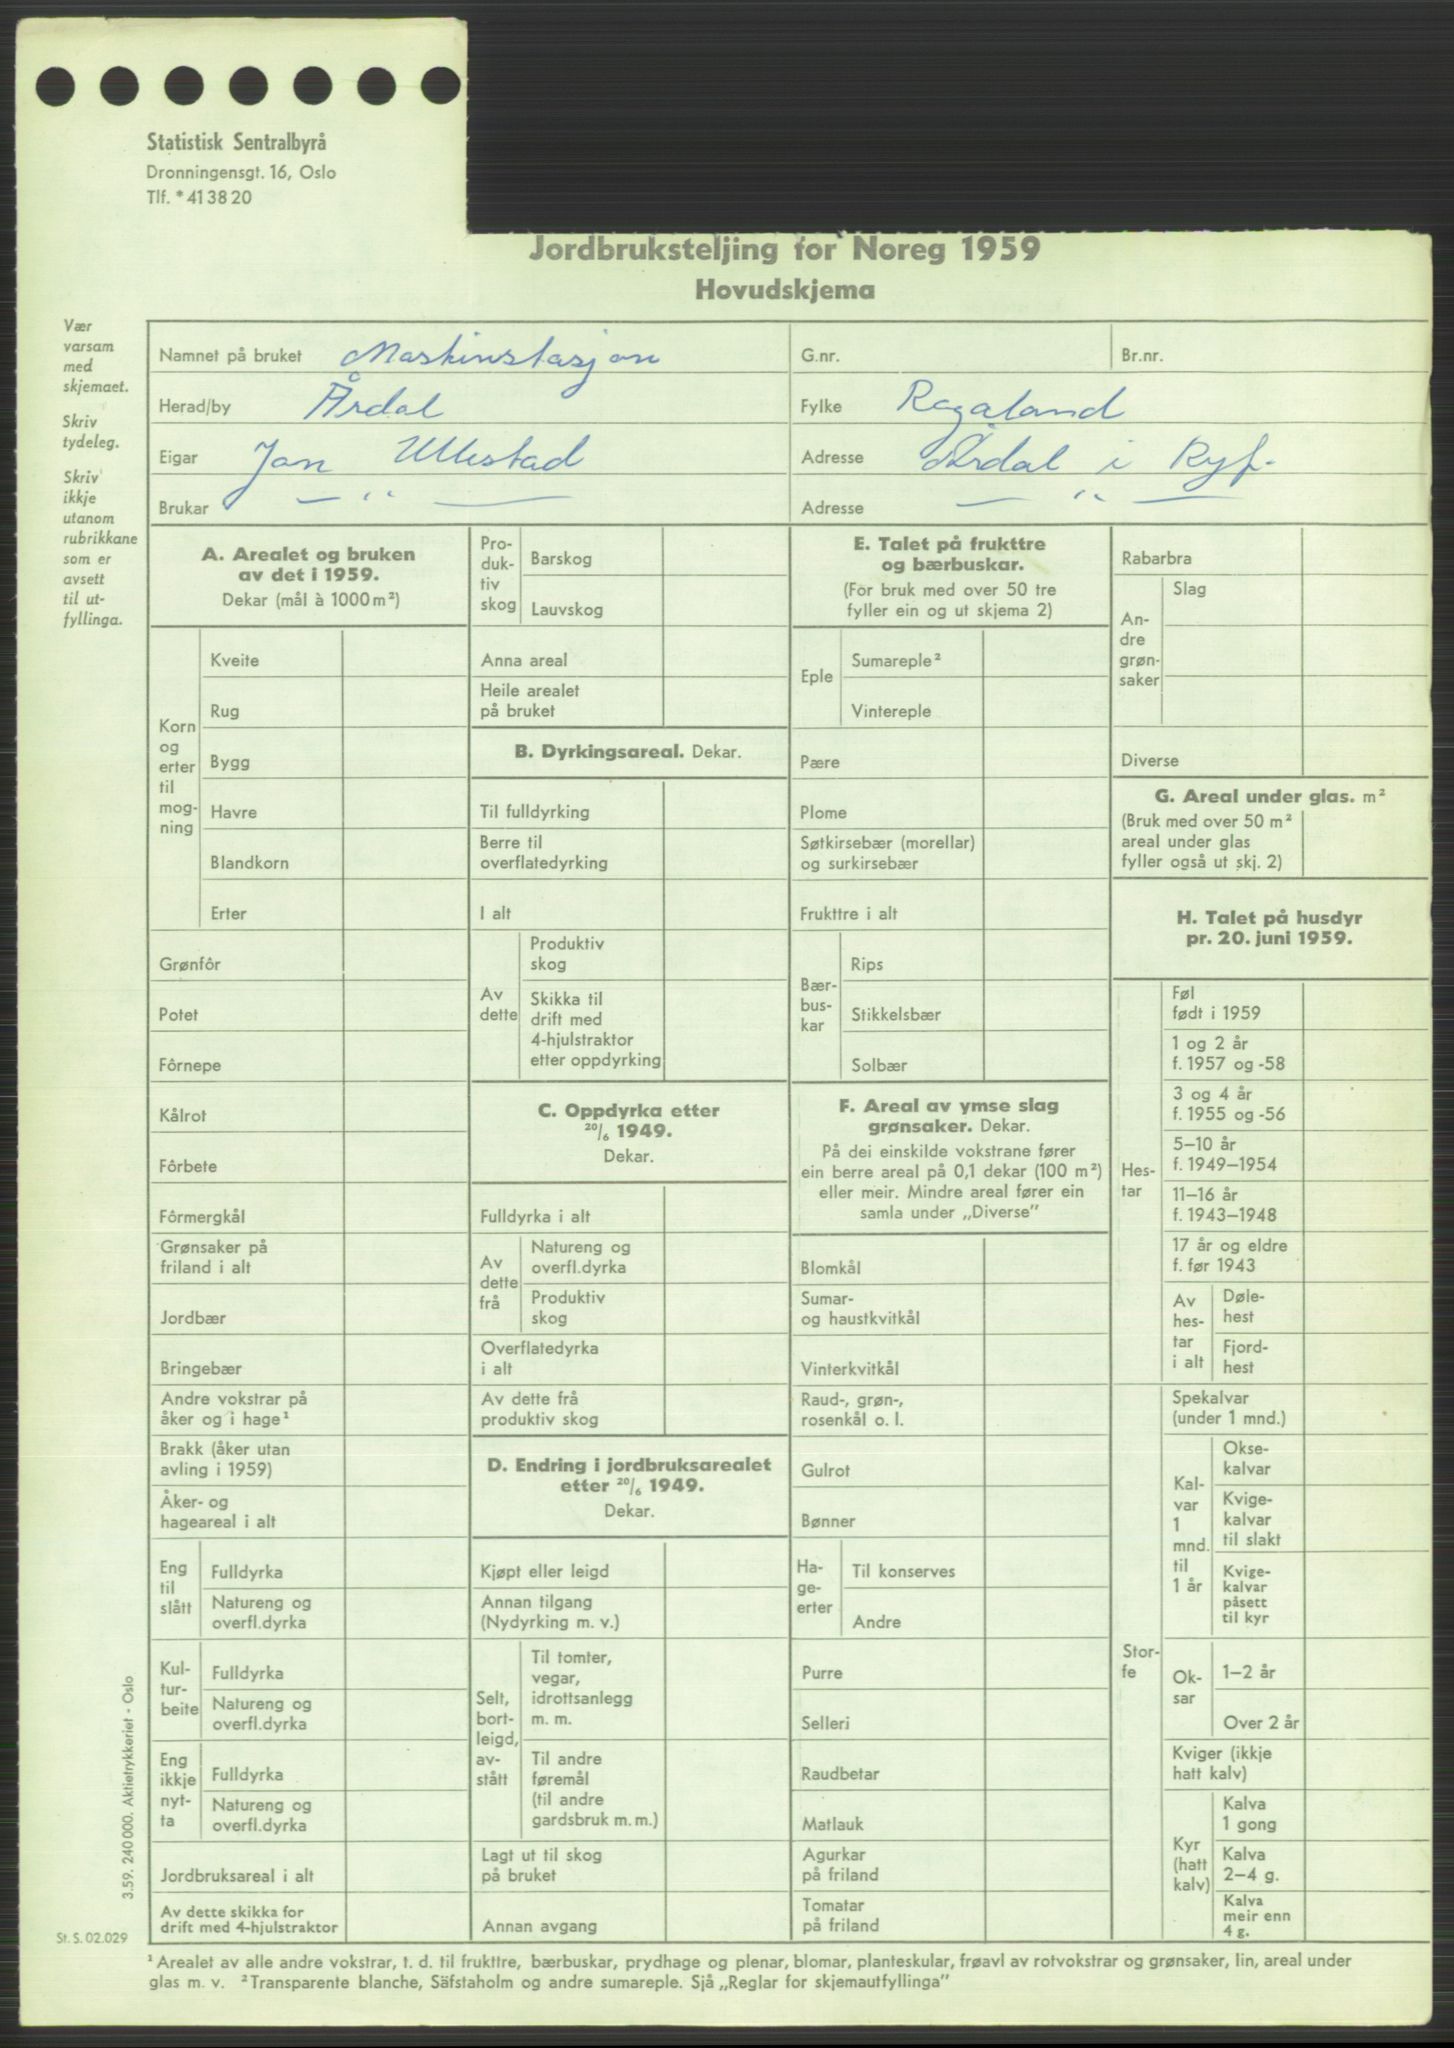 Statistisk Sentralbyrå
Dronningensgt. 16, Oslo
Tlf. *41 38 20
Jordbruksteljing for Noreg 1959
Hovudskjema
Vær
varsam
med
skjemaet.
Skriv
tydeleg.
Skriv
ikkje
utanom
rubrikkane
som er
avsett
til ut-
fyllinga.
Namnet på bruket Maskinstasjon G.nr. Br.nr.
Herad/by Årdal Fylke Rogaland
Eigar Jon Ullestad Adresse Årdal i Ryf.
Brukar — „ — Adresse — „ —
A. Arealet og bruken
av det i 1959.
Dekar (mål à 1000 m²)
Korn
og
erter
til
mog-
ning
Kveite
Rug
Bygg
Havre
Blandkorn
Erter
Grønfôr
Potet
Fôrnepe
Kålrot
Fôrbete
Fôrmergkål
Grønsaker på
friland i alt
Jordbær
Bringebær
Andre vokstrar på
åker og i hage¹
Brakk (åker utan
avling i 1959)
Åker- og
hageareal i alt
Eng
til
slått
Fulldyrka
Natureng og
overfl.dyrka
Kul-
tur-
beite
Fulldyrka
Natureng og
overfl.dyrka
Eng
ikkje
nyt-
ta
Fulldyrka
Natureng og
overfl.dyrka
Jordbruksareal i alt
Av dette skikka for
drift med 4-hjulstraktor
Pro-
duk-
tiv
skog
Barskog
Lauvskog
Anna areal
Heile arealet
på bruket
B. Dyrkingsareal. Dekar.
Til fulldyrking
Berre til
overflatedyrking
I alt
Av
dette
Produktiv
skog
Skikka til
drift med
4-hjulstraktor
etter oppdyrking
C. Oppdyrka etter
20/6 1949.
Dekar.
Fulldyrka i alt
Av
dette
frå
Natureng og
overfl.dyrka
Produktiv
skog
Overflatedyrka
i alt
Av dette frå
produktiv skog
D. Endring i jordbruksarealet
etter 20/6 1949.
Dekar.
Kjøpt eller leigd
Annan tilgang
(Nydyrking m. v.)
Selt,
bort-
leigd,
av-
stått
Til tomter,
vegar,
idrottsanlegg
m. m.
Til andre
føremål
(til andre
gardsbruk m. m.)
Lagt ut til skog
på bruket
Annan avgang
E. Talet på frukttre
og bærbuskar.
(For bruk med over 50 tre
fyller ein og ut skjema 2)
Eple
Sumareple²
Vintereple
Pære
Plome
Søtkirsebær (morellar)
og surkirsebær
Frukttre i alt
Bær-
bus-
kar
Rips
Stikkelsbær
Solbær
F. Areal av ymse slag
grønsaker. Dekar.
På dei einskilde vokstrane fører
ein berre areal på 0,1 dekar (100 m²)
eller meir. Mindre areal fører ein
samla under „Diverse”
Blomkål
Sumar-
og haustkvitkål
Vinterkvitkål
Raud-, grøn-,
rosenkål o. l.
Gulrot
Bønner
Ha-
ge-
erter
Til konserves
Andre
Purre
Selleri
Raudbetar
Matlauk
Agurkar
på friland
Tomatar
på friland
Rabarbra
An-
dre
grøn-
saker
Slag
Diverse
G. Areal under glas. m²
(Bruk med over 50 m²
areal under glas
fyller også ut skj. 2)
H. Talet på husdyr
pr. 20. juni 1959.
Hes-
tar
Føl
født i 1959
1 og 2 år
f. 1957 og -58
3 og 4 år
f. 1955 og -56
5–10 år
f. 1949–1954
11–16 år
f. 1943–1948
17 år og eldre
f. før 1943
Av
hes-
tar
i alt
Døle-
hest
Fjord-
hest
Stor-
fe
Spekalvar
(under 1 mnd.)
Kal-
var
1
mnd.
til
1 år
Okse-
kalvar
Kvige-
kalvar
til slakt
Kvige-
kalvar
påsett
til kyr
Ok-
sar
1–2 år
Over 2 år
Kviger (ikkje
hatt kalv)
Kyr
(hatt
kalv)
Kalva
1 gong
Kalva
2–4 g.
Kalva
meir enn
4 g.
3.59. 240 000. Aktietrykkeriet - Oslo
St. S. 02.029
¹ Arealet av alle andre vokstrar, t. d. til frukttre, bærbuskar, prydhage og plenar, blomar, planteskular, frøavl av rotvokstrar og grønsaker, lin, areal under
glas m. v. ² Transparente blanche, Säfstaholm og andre sumareple. Sjå „Reglar for skjemautfyllinga”